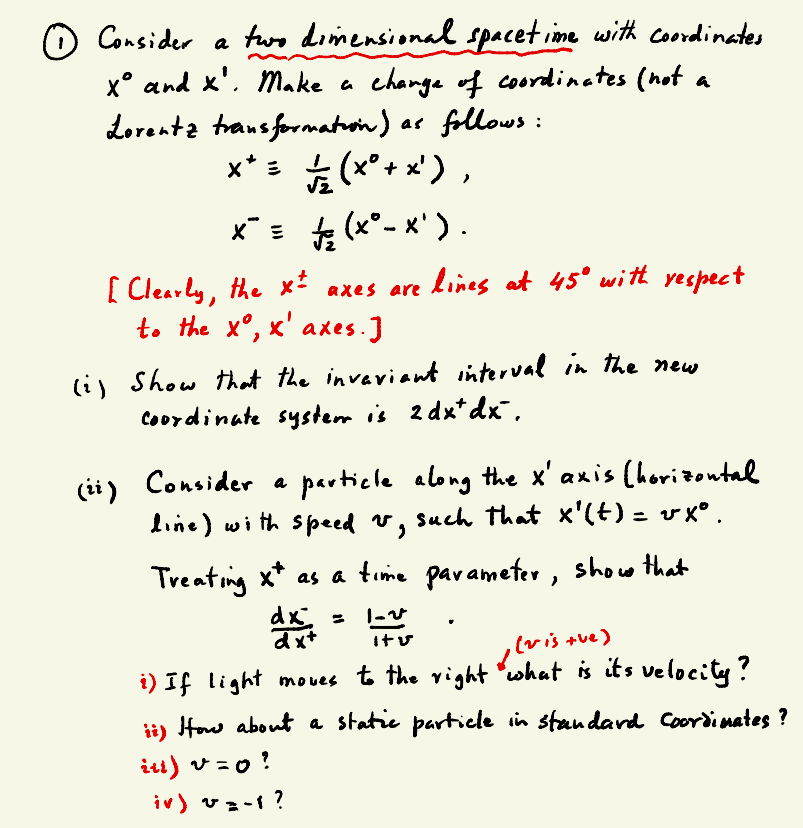 ① Consider a two dimensional spacetime with coordinates
x⁰ and x¹. Make a change of coordinates (not a
Lorentz transformation) as follows :
x⁺ ≡ 1/√2 (x⁰ + x¹) ,
x⁻ ≡ 1/√2 (x⁰ - x¹) .
[Clearly, the x± axes are lines at 45° with respect
to the x⁰, x¹ axes.]
(i) Show that the invariant interval in the new
coordinate system is 2dx⁺dx⁻.
(ii) Consider a particle along the x¹ axis (horizontal
line) with speed v, such that x¹(t) = vx⁰.
Treating x⁺ as a time parameter, show that
dx⁻/dx⁺ = 1-v/1+v .
(v is +ve)
i) If light moves to the right what is its velocity?
ii) How about a static particle in standard coordinates?
iii) v = 0 ?
iv) v = -1 ?